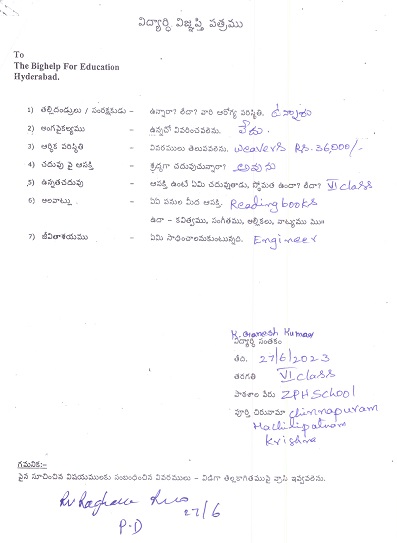 విద్యార్థి విజ్ఞప్తి పత్రము
To
The Bighelp For Education
Hyderabad.
1) తల్లిదండ్రులు / సంరక్షకుడు – ఉన్నారా? లేదా? వారి ఆరోగ్య పరిస్థితి. ఉన్నారు
2) అంగవైకల్యము – ఉన్నచో వివరించవలెను. లేదు.
3) ఆర్థిక పరిస్థితి – వివరములు తెలుపవలెను. weavers Rs. 36,000/-
4) చదువు పై ఆసక్తి – శ్రద్ధగా చదువుచున్నారా? అవును
5) ఉన్నతచదువు – ఆసక్తి ఉంటే ఏమి చదువుతాడు, స్తోమత ఉందా? లేదా? VI class
6) అలవాట్లు – ఏఏ పనుల మీద ఆసక్తి. Reading books
ఉదా – కవిత్వము, సంగీతము, అల్లికలు, నాట్యము మొ॥
7) జీవితాశయము – ఏమి సాధించాలనుకుంటున్నది. Engineer
K. Ganesh Kumar
విద్యార్థి సంతకం
తేది. 27/6/2023
తరగతి VI class
పాఠశాల పేరు ZPH School
పూర్తి చిరునామా chinnapuram
Machilipatnam
Krishna
గమనిక:-
పైన సూచించిన విషయములకు సంబంధించిన వివరములు – విడిగా తెల్లకాగితముపై వ్రాసి ఇవ్వవలెను.
27/6
P.D